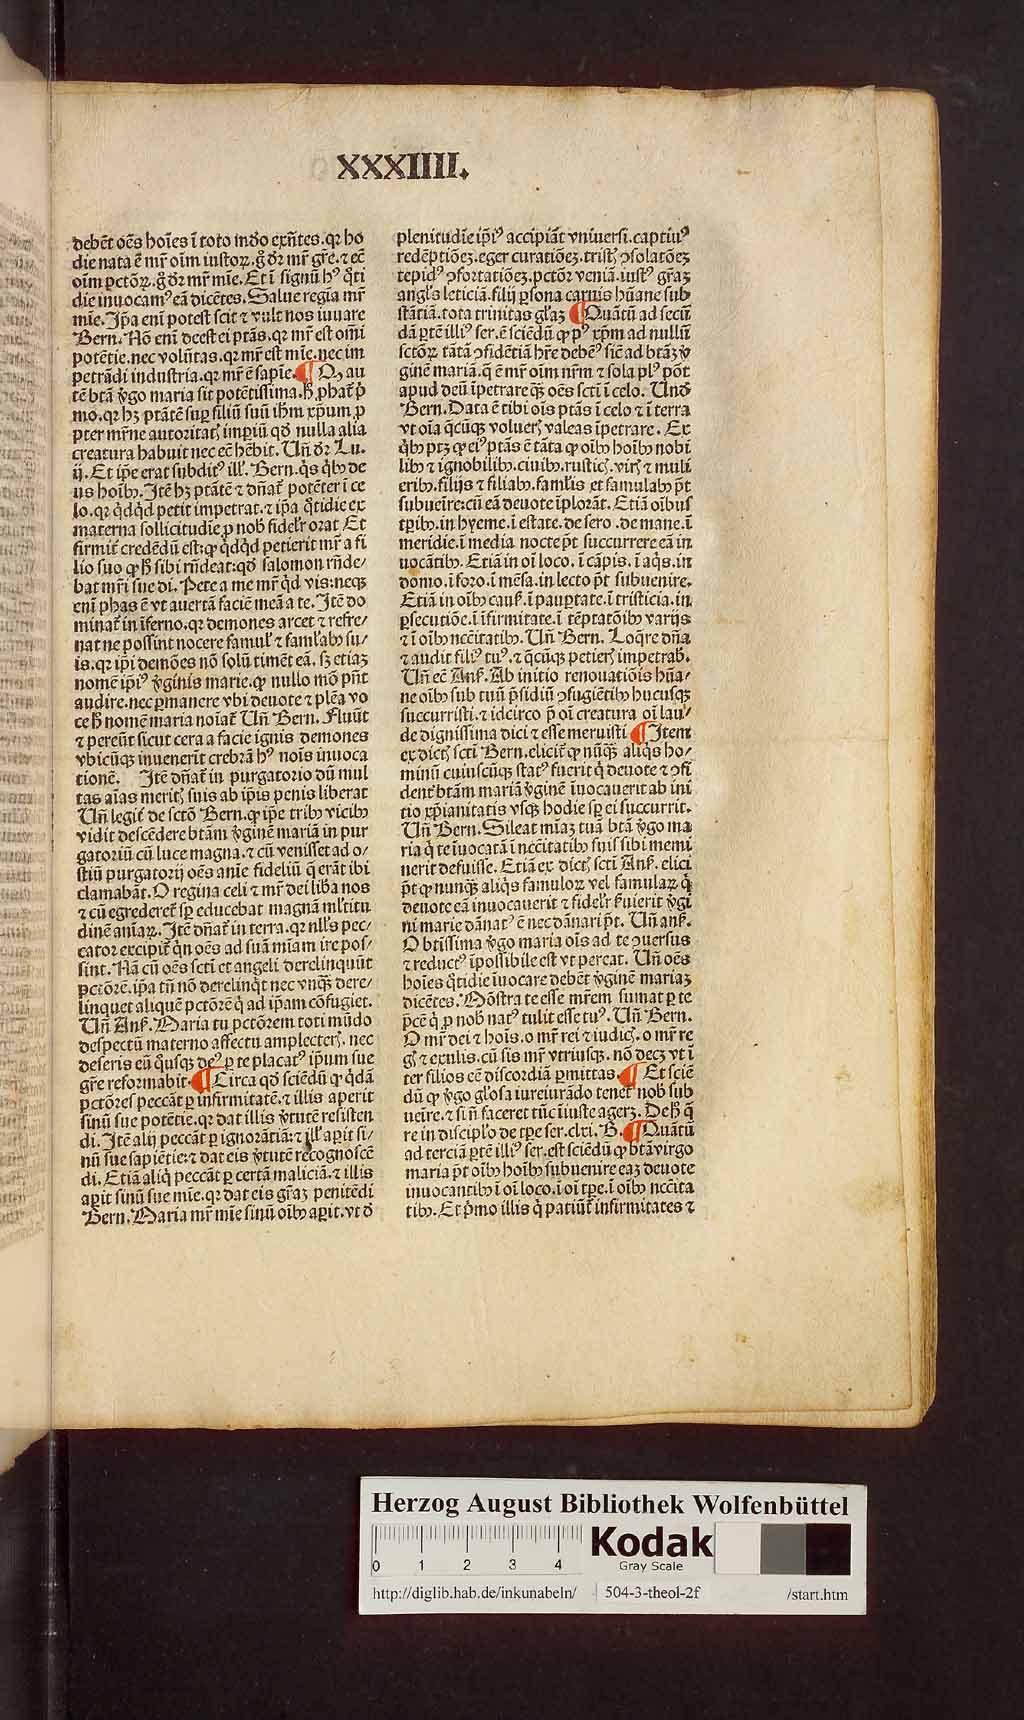 XXXIIII.
debēt oēs hoīes ī toto mūdo exn̄tes. qꝛ ho
die nata ē mr̄ oīm iustoꝝ. gͦ dr̄ mr̄ gr̄e. ⁊ eē
oīm pctōꝝ. gͦ dr̄ mr̄ mīe. Et ī signū hꝰ q̊ti
die inuocamꝰ eā dicētes. Salue regīa mr̄
mīe. Ip̄a enī potest scit ⁊ vult nos iuuare
Bern. Nō enī deest ei ptās. qꝛ mr̄ est om̄i
potētie. nec volūtas. qꝛ mr̄ est mīe. nec im
petrādi industria. qꝛ mr̄ ē sapīe. ¶ Qꝫ au
tē btā v̊go maria sit potētissima. hͦ ꝓbat̄ p̄
mo. qꝛ hꝫ ptātē suꝑ filiū suū ihm̄ xp̄um. ꝓ
pter mr̄ne autoritatꝭ imꝑiū qd̊ nulla alia
creatura habuit nec eē hēbit. Uñ dr̄ Lu.
ij. Et ip̄e erat subditꝰ ill̓. Bern. q̊s q̊bꝰ de
us hoībꝰ. Itē hꝫ ptātē ⁊ dn̄at̄ potēter ī ce
lo. qꝛ q̊dq̊d petit impetrat. ⁊ ip̄a q̊tidie ex
materna sollicitudīe ꝓ nob̓ fidel̓r orat Et
firmit̓ credēdū est: ꝙ q̊dq̊d petierit mr̄ a fi
lio suo ꝙ hͦ sibi rn̄deat: qd̊ salomon rn̄de⸗
bat mr̄i sue di. Pete a me mr̄ q̊d vis: neqꝫ
enī phas ē vt auertā faciē meā a te. Itē do
minat̄ in īferno. qꝛ demones arcet ⁊ refre⸗
nat ne possint nocere famul̓ ⁊ faml̓abꝰ su⸗
is. qꝛ ip̄i demōes nō solū timēt eā. sꝫ etiaꝫ
nomē ip̄iꝰ v̊ginis marie. ꝙ nullo mō pn̄t
audire. nec ꝑmanere vbi deuote ⁊ plēa vo
ce hͦ nomē maria noīat̄ Uñ Bern. Fluūt
⁊ pereūt sicut cera a facie ignis demones
vbicūqꝫ inuenerit crebrā hꝰ noīs inuoca
tionē. Itē dn̄at̄ in purgatorio dū mul
tas aīas meritꝭ suis ab ip̄is penis liberat
Uñ legit̓ de sctō Bern. ꝙ ip̄e tribꝰ vicibꝰ
vidit descēdere btām v̊ginē mariā in pur
gatoriū cū luce magna. ⁊ cū venisset ad o⸗
stiū purgatorij oēs anīe fideliū q̄ erāt ibi
clamabāt. O regina celi ⁊ mr̄ dei libͣa nos
⁊ cū egrederet̄ sꝑ educebat magnā ml̓titu
dinē aniaꝝ. Itē dn̄at̄ in terra. qꝛ nll̓s pec⸗
cator excipit̄ q̊n oēs ad suā mīam ire pos⸗
sint. Nā cū oēs sctī et angeli derelinquūt
pctōrē. ip̄a tn̄ nō derelinq̊t nec vnqꝫ dere⸗
linquet aliquē pctōrē q̊ ad ip̄am cōfugiet.
Uñ Anẜ. Maria tu pctōrem toti mūdo
despectū materno affectu amplecterꝭ. nec
deseris eū q̊usqꝫ deꝰ ꝑ te placatꝰ ip̄um sue
gr̄e reformabit. ¶ Circa qd̊ sciēdū ꝙ q̊dā
pctōres peccāt ꝑ infirmitatē. ⁊ illis aperit
sinū sue potētie. qꝛ dat illis v̊tutē resisten
di. Itē alij peccāt ꝑ ignorātiā: ⁊ ill̓ aꝑit si⸗
nū sue sapiētie: ⁊ dat eis v̊tutē recognoscē
di. Etiā aliq̊ peccāt ꝑ certā maliciā. ⁊ illis
aꝑit sinū sue mīe. qꝛ dat eis gr̄aꝫ penitēdi
Bern. Maria mr̄ mīe sinū oībꝰ aꝑit. vt d̓
plenitudīe ip̄iꝰ accipiāt vniuersi. captiuꝰ
redēptiōeꝫ. eger curatiōeꝫ. tristꝭ ꝯsolatōeꝫ
tepidꝰ ꝯfortatiōeꝫ. pctōr veniā. iustꝰ gr̄aꝫ
angl̓s leticiā. filij ꝑsona carnis hūane sub
stātiā. tota trinitas gl̓aꝫ ¶ Quātū ad secū
dā ꝑtē illiꝰ ser. ē sciēdū ꝙ pꝰ xp̄m ad nullū
sctōꝝ tātā ꝯfidētiā hr̄e debēꝰ siē ad btāꝫ v̊
ginē mariā. q̄ ē mr̄ oīm nr̄m ⁊ sola plꝰ pōt
apud deū īpetrare qꝫ oēs sctī ī celo. Und̓
Bern. Data ē tibi oīs ptās ī celo ⁊ ī terra
vt oīa q̄cūqꝫ voluerꝭ valeas īpetrare. Ex
q̊bꝰ ptꝫ ꝙ eiꝰ ptās ē tāta ꝙ oībꝰ hoībꝰ nobi
libꝰ ⁊ ignobilibꝰ. ciuibꝰ. rusticꝭ. virꝭ ⁊ muli
eribꝰ. filijs ⁊ filiabꝰ. faml̓is et famulabꝰ p̄t
subueīre: cū eā deuote īplorāt. Etiā oībus
tꝑibꝰ. in hyeme. ī estate. de sero. de mane. ī
meridie. ī media nocte p̄t succurrere eā in
uocātibꝰ. Etiā in oī loco. ī cāpis. ī aqꝭ. in
domo. ī foro. ī mēsa. in lecto p̄t subuenire.
Etiā in oībꝰ cauẜ. ī pauꝑtate. ī tristicia. in
ꝑsecutiōe. ī īfirmitate. ī tēptatōibꝰ varijs
⁊ ī oībꝰ ncc̄itatibꝰ. Uñ Bern. Loq̄re dn̄a
⁊ audit filiꝰ tuꝰ. ⁊ q̄cūqꝫ petierꝭ impetrab̓.
Uñ eē Anẜ. Ab initio renouatiōis hūa⸗
ne oībꝰ sub tuū p̄sidiū ꝯfugiētibꝰ hucusqꝫ
succurristi. ⁊ idcirco p̄ oī creatura oī lau⸗
de dignissima dici ⁊ esse meruisti ¶ Item
ex dictꝭ sctī Bern. elicit̓ ꝙ nūqꝫ aliq̊s ho⸗
minū cuiuscūqꝫ statꝰ fuerit q̊ deuote ⁊ ꝯfi
dent̓ btām mariā v̊ginē īuocauerit ab ini
tio xp̄ianitatis vsqꝫ hodie sꝑ ei succurrit.
Uñ Bern. Sileat mīaꝫ tuā btā v̊go ma
ria q̊ te īuocatā ī ncc̄itatibꝰ suis sibi memi
nerit defuisse. Etiā ex dictꝭ sctī Anẜ. elici
p̄t ꝙ nunqꝫ aliq̊s famuloꝝ vel famulaꝝ q̊
deuote eā inuocauerit ⁊ fidel̓r ẜuierit v̊gi
ni marie dānatꝰ ē nec dānari p̄t. Uñ anẜ.
O btissima v̊go maria oīs ad te ꝯuersus
⁊ reductꝰ īpossibile est vt pereat. Uñ oēs
hoīes q̊tidie īuocare debēt v̊ginē mariaꝫ
dicētes. Mōstra te esse mr̄em sumat ꝑ te
p̄cē q̊ ꝓ nob̓ natꝰ tulit esse tuꝰ. Uñ Bern.
O mr̄ dei ⁊ hoīs. o mr̄ rei ⁊ iudicꝭ. o mr̄ re
gꝭ ⁊ exulis. cū sis mr̄ vtriusqꝫ. nō decꝫ vt ī
ter filios eē discordiā ꝑmittas. ¶ Et sciē
dū ꝙ v̊go gl̓osa iureiurādo tenet̓ nob̓ sub
ueīre. ⁊ si n̄ faceret tūc īiuste agerꝫ. De hͦ q̄
re in discipl̓o de tꝑe ser. clxi. B. ¶ Quātū
ad terciā ꝑtē illiꝰ ser. est sciēdū ꝙ btā virgo
maria p̄t oībꝰ hoībꝰ subuenire eaꝫ deuote
inuocantibꝰ ī oī loco. ī oī tꝑe. ī oībꝰ ncc̄ita
tibꝰ. Et p̄mo illis q̊ patiūt̄ infirmitates ⁊
Herzog August Bibliothek Wolfenbüttel
0 1 2 3 4
Kodak
Gray Scale
http://diglib.hab.de/inkunabeln/ 504-3-theol-2f /start.htm